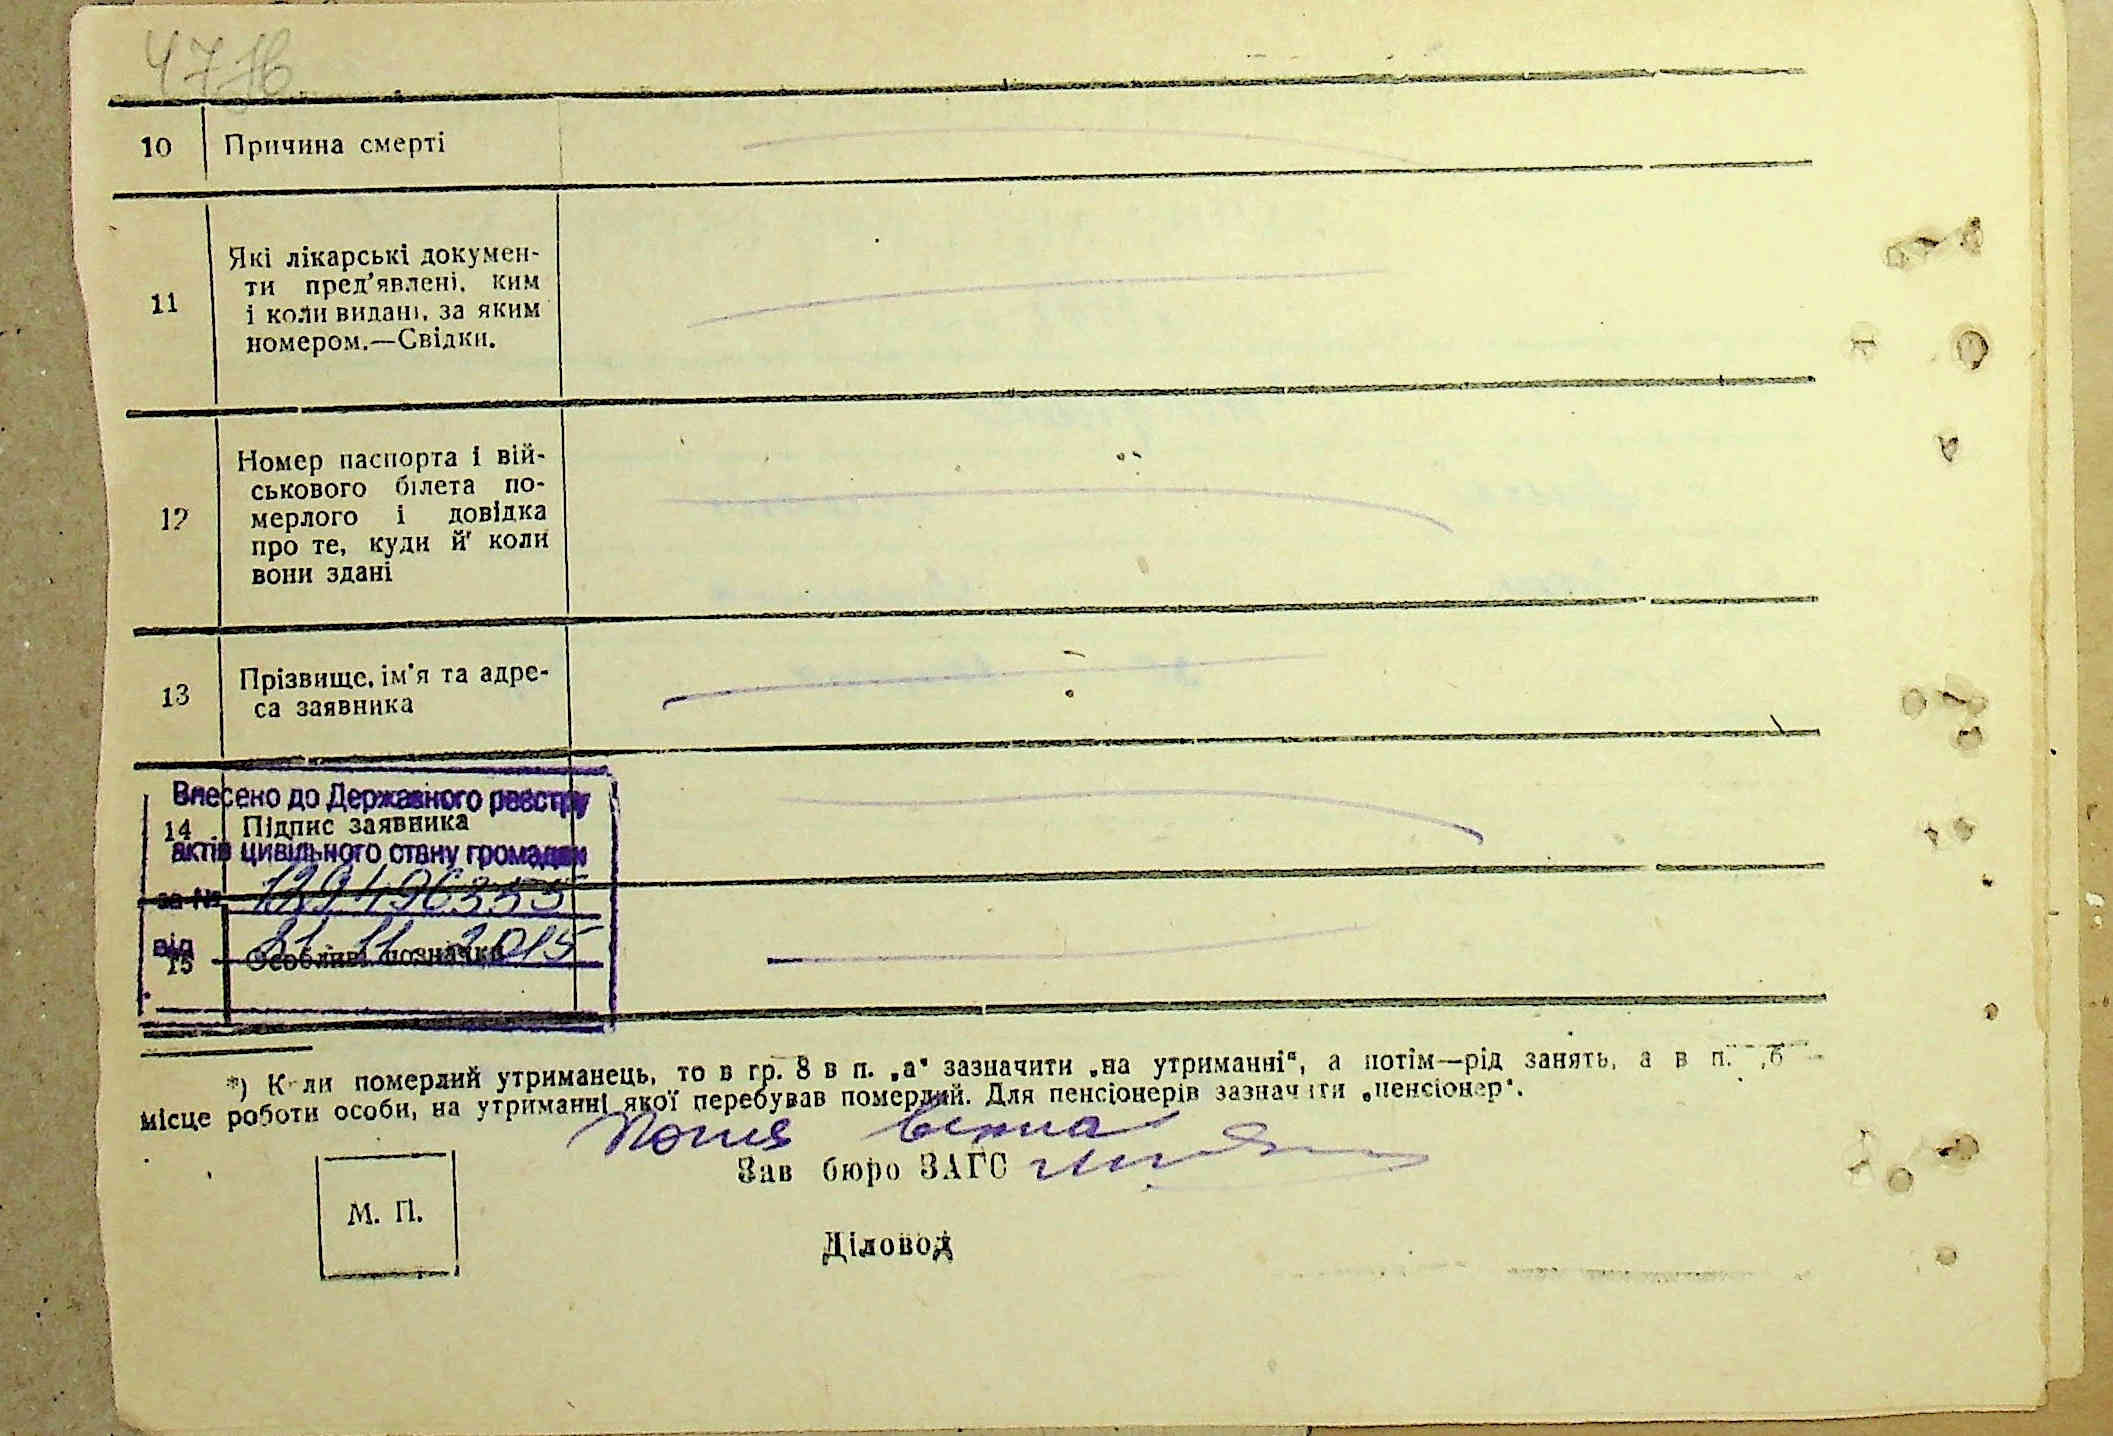 10 Причина смерті
11 Які лікарські докумен-
ти пред'явлені, ким
і коли видані, за яким
номером.—Свідки.
12 Номер паспорта і вій-
ськового білета по-
мерлого і довідка
про те, куди й коли
вони здані
13 Прізвище, ім'я та адре-
са заявника
Внесено до Державного реєстру
14 Підпис заявника
актів цивільного стану громадян
за №
від 2015
15 Особливі позначки
*) Коли померлий утриманець, то в гр. 8 в п. „а" зазначити „на утриманні", а потім—рід занять, а в п. „б"
місце роботи особи, на утриманні якої перебував померлий. Для пенсіонерів зазначити „пенсіонер".
Копія вірна
Зав бюро ЗАГС
М. П.
Діловод